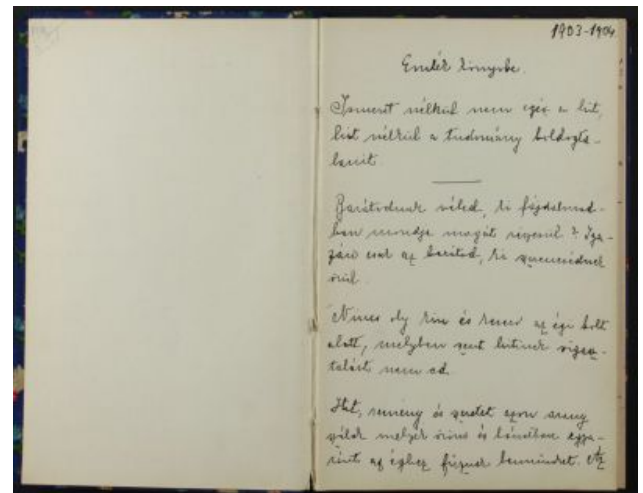 1903-1904
Emlék könyvbe.
Ismeret nélkül nem egész a hit,
hit nélkül a tudomány boldogta-
lanít
Barátodnak véled, ki fájdalmad-
ban mondja magát részesül? Iga-
zán csak az barátod, ki szerencsédnek
örül.
Nincs oly kín és keserv az égi bolt
alatt, melyben szent hitünk vigasz-
talást nem ad.
Hit, remény és szeretet azon arany
szálak melyek öröm és bánatban egya-
ránt az éghez fűznek bennünket. Az